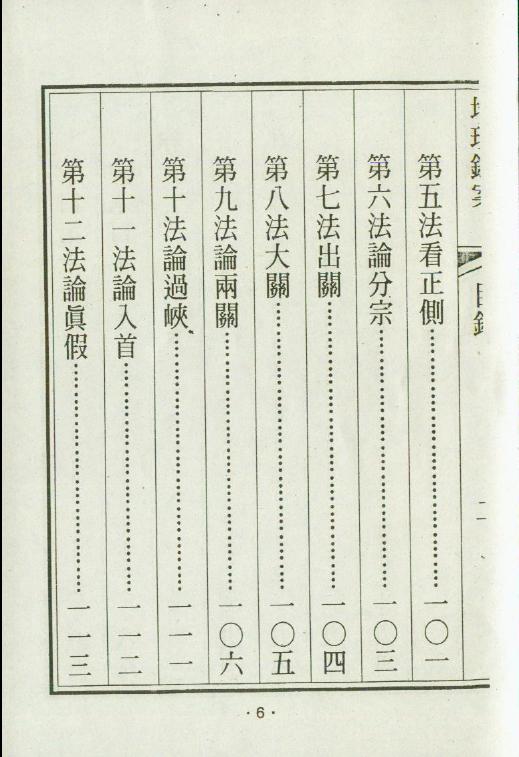 目錄
二
第五法看正側⋯⋯⋯⋯⋯⋯⋯⋯⋯⋯一〇一
第六法論分宗⋯⋯⋯⋯⋯⋯⋯⋯⋯⋯一〇三
第七法出關⋯⋯⋯⋯⋯⋯⋯⋯⋯⋯一〇四
第八法大關⋯⋯⋯⋯⋯⋯⋯⋯⋯⋯一〇五
第九法論兩關⋯⋯⋯⋯⋯⋯⋯⋯⋯⋯一〇六
第十法論過峽⋯⋯⋯⋯⋯⋯⋯⋯⋯⋯一一一
第十一法論入首⋯⋯⋯⋯⋯⋯⋯⋯⋯⋯一一二
第十二法論眞假⋯⋯⋯⋯⋯⋯⋯⋯⋯⋯一一三
·6·